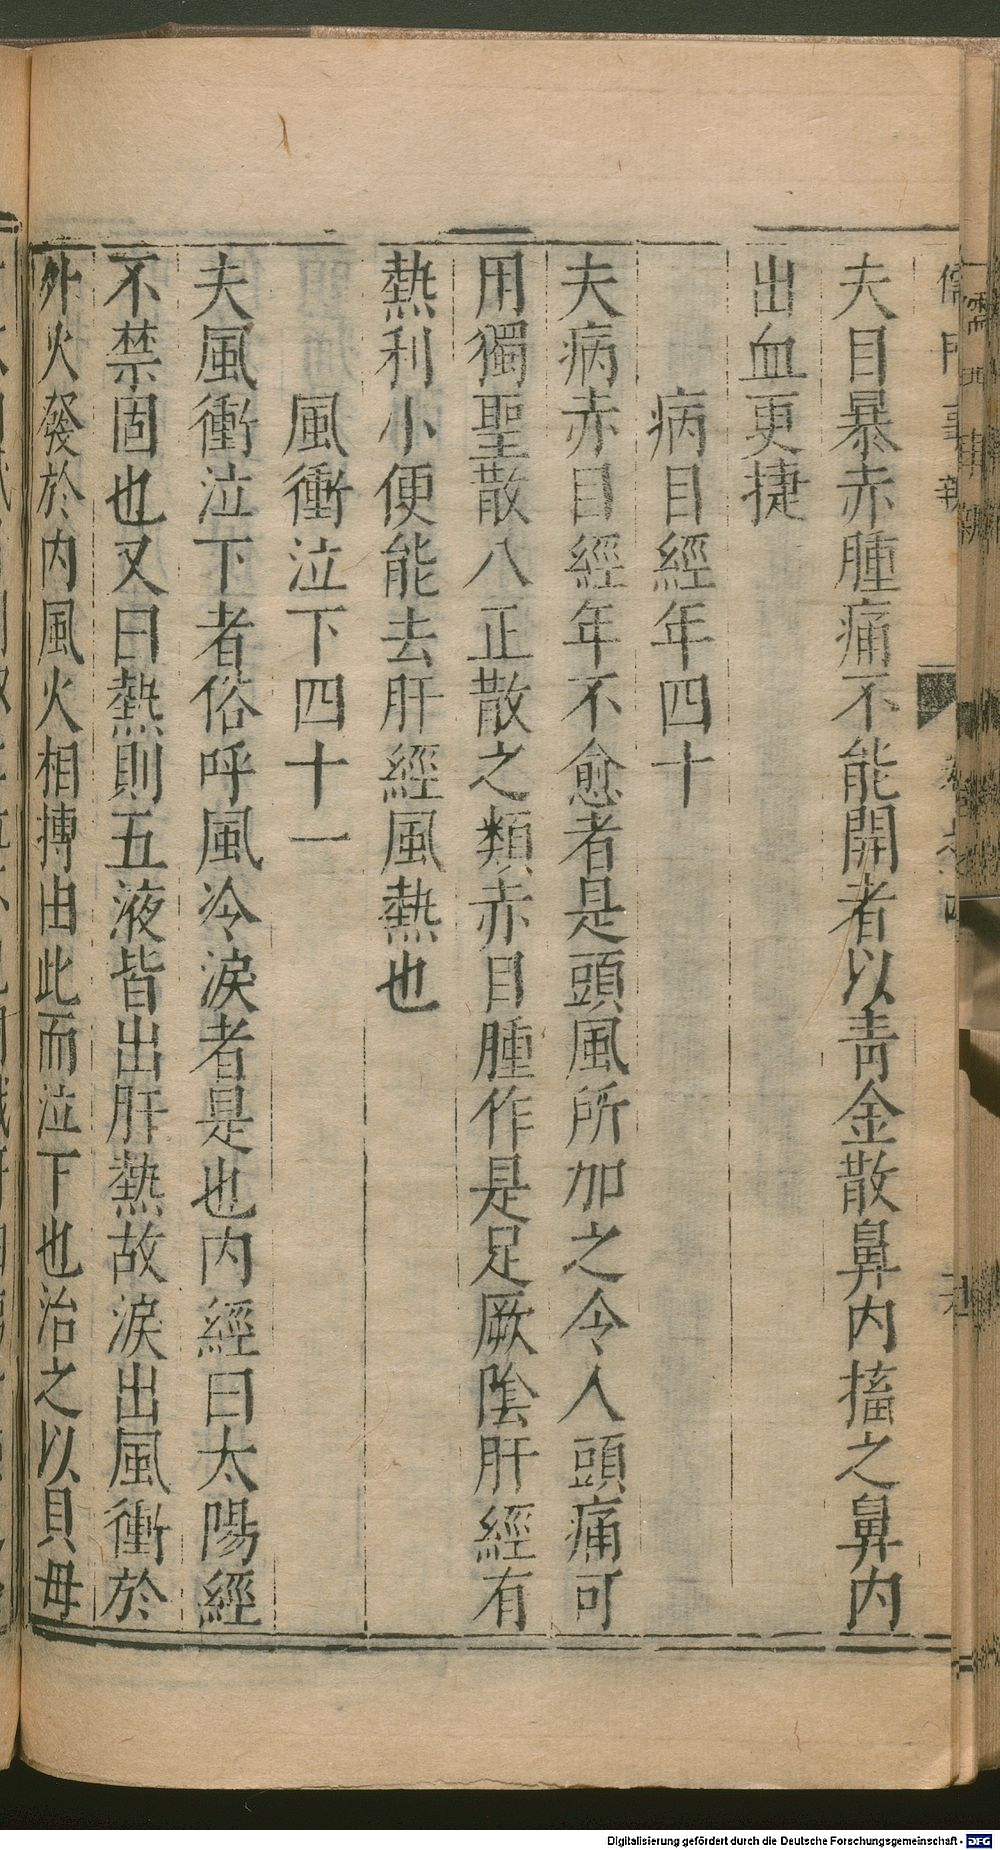 夫目暴赤腫痛不能開者以青金散鼻内搐之鼻内
出血更捷
病目經年四十
夫病赤目經年不愈者是頭風所加之令人頭痛可
用獨聖散八正散之類赤目腫作是足厥陰肝經有
熱利小便能去肝經風熱也
風衝泣下四十一
夫風衝泣下者俗呼風冷淚者是也内經曰太陽經
不禁固也又曰熱則五液皆出肝熱故淚出風衝於
外火發於内風火相搏由此而泣下也治之以貝母
Digitalisierung gefördert durch die Deutsche Forschungsgemeinschaft - DFG